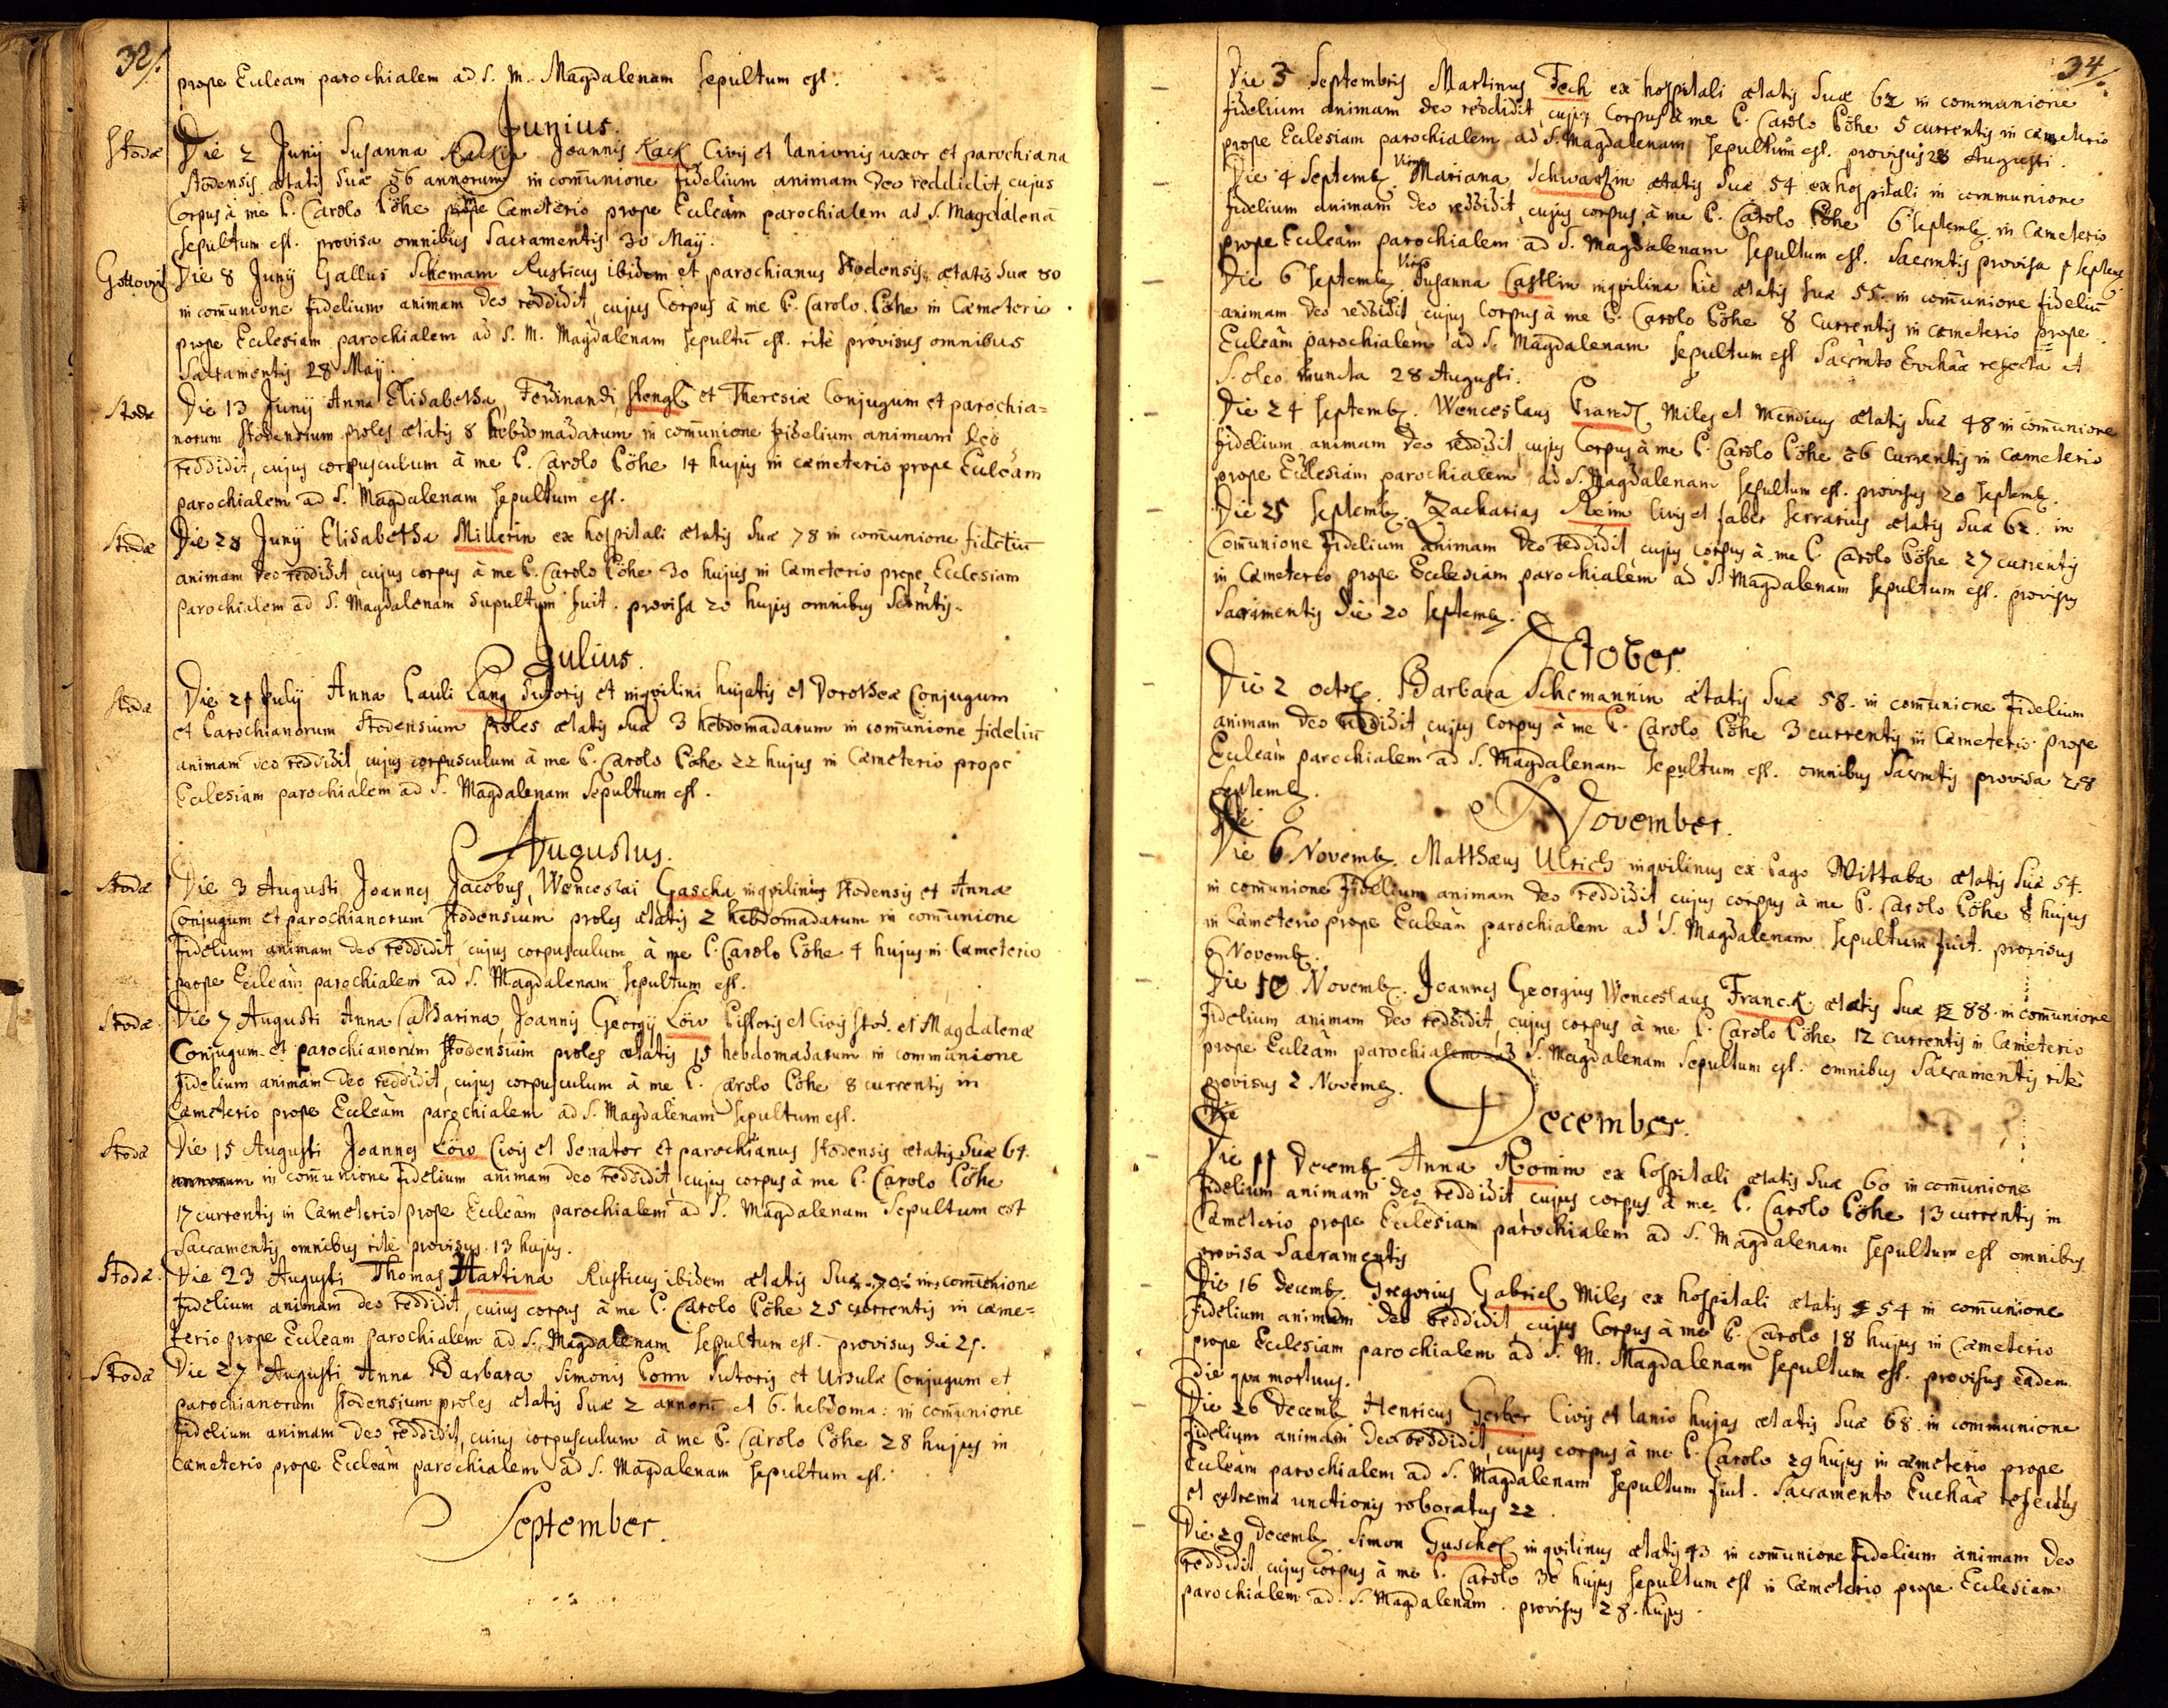 32/.
prope Eccleam parochialem ad S. M. Magdalenam sepultum est.
Junius.
Stodæ
Die 2 Junij Susanna Joannis Kack Civis et lanionis uxor et parochiana
Stodensis ætatis suæ 56 annorum in com̄unione fidelium animam deo reddidit, cujus
Corpus à me P. Carolo Pöhe Cæmeterio prope Eccleam parochialem ad S. Magdalenā
sepultum est. provisa omnibus Sacramentis 30 May.
Die 8 Junij Gallus Schemam Rusticus ibidem et parochianus Stodensis, ætatis suæ 80
in com̄unione fidelium animam deo reddidit, cujus Corpus à me P. Carolo Pöhe in Cæmeterio
prope Ecclesiam parochialem ad S. M. Magdalenam sepultū est. ritè provisus omnibus
Sacramentis 28 May.
Stodæ
Die 13 Junij Anna Elisabetha, Ferdinandi Stengl et Theresiæ Conjugum et parochia=
norum Stodensium proles ætatis 8 hebdomadarum in com̄unione fidelium animam deo
reddidit, cujus corpusculum à me P. Carolo Pöhe 14 hujus in cæmeterio prope Eccleam
parochialem ad S. Magdalenam sepultum est.
Stodæ
Die 28 Junij Elisabetha Millerin ex hospitali ætatis suæ 78 in com̄unione fideliū
animam deo reddidit cujus corpus à me P. Carolo Pöhe 30 hujus in Cæmeterio prope Ecclesiam
parochialem ad S. Magdalenam supultum fuit. provisa 20 hujus omnibus Scrmtis.
Julius.
Stodæ
Die 21 Julij Anna Pauli Lang Sutoris et inqvilini hujatis et Dorotheæ Conjugum
et Parochianorum Stodensium proles ætatis suæ 3 hebdomadarum in com̄unione fideliū
animam deo reddidit, cujus corpusculum à me P. Carolo Pöhe 22 hujus in Cæmeterio prope
Ecclesiam parochialem ad S. Magdalenam sepultum est.
Augustus.
Stodæ
Die 3 Augusti Joannes Jacobus, Wenceslai Gascha inqvilinus Stodensis et Annæ
Conjugum et parochianorum Stodensium proles ætatis 2 hebdomadarum in com̄unione
fidelium animam deo reddidit, cujus corpusculum à me P. Carolo Pöhe 4 hujus in Cæmeterio
prope Eccleam parochialem ad S. Magdalenam sepultum est.
Stodæ
Die 7 Augusti Anna Catharina, Joannis Georgij Löw Pistoris et Civis Stod. et Magdalenæ
Conjugum et parochianorum Stodensium proles ætatis 15 hebdomadarum in communione
fidelium animam deo reddidit, cujus corpusculum à me P. Carolo Pöhe 8 currentis in
Cæmeterio prope Eccleam parochialem ad S. Magdalenam sepultum est.
Stodæ
Die 15 Augusti Joannes Löw Civis et Senator et parochianus Stodensis ætatis suæ 64.
in com̄unione fidelium animam deo reddidit, cujus corpus à me P. Carolo Pöhe
17 currentis in Cæmeterio prope Eccleam parochialem ad S. Magdalenam sepultum est
Sacramentis omnibus ritè provisus 13 hujus.
Stodæ.
Die 23 Augusti Thomas Martina Rusticus ibidem ætatis suæ 70 in com̄unione
fidelium animam deo reddidit, cujus corpus à me P. Carolo Pöhe 25 currentis in cæme=
terio prope Eccleam parochialem ad S. Magdalenam sepultum est. provisus die 21.
Stodæ
Die 27 Augusti Anna Barbara Simonis Sutoris et Ursulæ Conjugum et
parochianorum Stodensium proles ætatis suæ 2 annorū et 6. hebdoma: in com̄unione
fidelium animam deo reddidit, cujus corpusculum à me P. Carolo Pöhe 28 hujus in
Cæmeterio prope Eccleam parochialem ad S. Magdalenam sepultum est.
September.
34/.
Die 3 Septembris Martinus Fech ex hospitali ætatis suæ 62 in communione
fidelium animam deo reddidit, cujus Corpus à me P. Carolo Pöhe 5 currentis in cæmeterio
prope Ecclesiam parochialem ad S. Magdalenam sepultum est. provisus 28 Augusti.
Die 4 Septemb. Virgo Mariana Schwartzin ætatis suæ 54 ex hospitali in communione
fidelium animam deo reddidit, cujus corpus à me P. Carolo Pöhe 6 Septemb. in Cæmeterio
prope Eccleam parochialem ad S. Magdalenam sepultum est. Sacrmtis provisa Septemb.
Die 6 Septemb. Virgo Susanna Castlin inqvilina hic ætatis suæ 55. in com̄unione fideliū
animam deo reddidit, cujus Corpus à me P. Carolo Pöhe 8 Currentis in cæmeterio prope
Eccleam parochialem ad S. Magdalenam sepultum est Sacrmto Evchaæ refecta et
S. oleo inuncta 28 Augusti.
Die 24 Septemb. Wenceslaus Miles et mendicus ætatis suæ 48 in com̄unione
fidelium animam deo reddidit, cujus Corpus à me P. Carolo Pöhe 26 Currentis in Cæmeterio
prope Ecclesiam parochialem ad S. Magdalenam sepultum est. provisus 20 Septemb.
Die 25 Septemb. Zacharias Rem Civis et faber ferrarius ætatis suæ 62. in
Com̄unione fidelium animam deo reddidit, cujus corpus à me P. Carolo Pöhe 27 currentis
in Cæmeterio prope Ecclesiam parochialem ad S. Magdalenam sepultum est. provisus
Sacramentis die 20 Septemb.
October.
Die 2 octob. Barbara Schemannin ætatis suæ 58. in com̄unione fidelium
animam deo reddidit, cujus Corpus à me P. Carolo Pöhe 3 currentis in Cæmeterio prope
Eccleam parochialem ad S. Magdalenam sepultum est. omnibus Sacrmtis provisa 28
Septemb.
November.
Die 6 Novemb. Matthæus Ulrich inqvilinus ex Pago Wittaba ætatis suæ 54.
in com̄unione fidelium animam deo reddidit, cujus corpus à me P. Carolo Pöhe 8 hujus
in Cæmeterio prope Eccleam parochialem ad S. Magdalenam sepultum fuit. provisus
6 Novemb.
Die 10 Novemb. Joannes Georgius Wenceslaus Franck ætatis suæ 88. in com̄unione
fidelium animam deo reddidit, cujus corpus à me P. Carolo Pöhe 12 currentis in Cæmeterio
prope Eccleam parochialem ad S. Magdalenam sepultum est. omnibus Sacramentis ritè
provisus 2 Novemb.
Die
December.
Die 11 Decemb. Anna Romin ex hospitali ætatis suæ 60 in com̄unione
fidelium animam deo reddidit cujus corpus à me P. Carolo Pöhe 13 currentis in
Cæmeterio prope Ecclesiam parochialem ad S. Magdalenam sepultum est omnibus
provisa Sacramentis
Die 16 Decemb. Gregorius Gabriel Miles ex hospitali ætatis 54 in com̄unione
fidelium animam deo reddidit, cujus Corpus à me P. Carolo 18 hujus in Cæmeterio
prope Ecclesiam parochialem ad S. M. Magdalenam sepultum est. provisus eadem
Die qva mortuus.
Die 26 Decemb. Henricus Gerber Civis et lanio hujas ætatis suæ 68. in communione
fidelium animam deo reddidit, cujus corpus à me P. Carolo 29 hujus in cæmeterio prope
Eccleam parochialem ad S. Magdalenam sepultum fuit. Sacramento Euchaæ refectus
et extremæ unctionis roboratus 22.
Die 29 Decemb. Simon Guschel inqvilinus ætatis 43 in com̄unione fidelium animam deo
reddidit, cujus Corpus à me P. Carolo 30 hujus sepultum est in Cæmeterio prope Ecclesiam
parochialem ad S. Magdalenam. provisus 28. hujus.